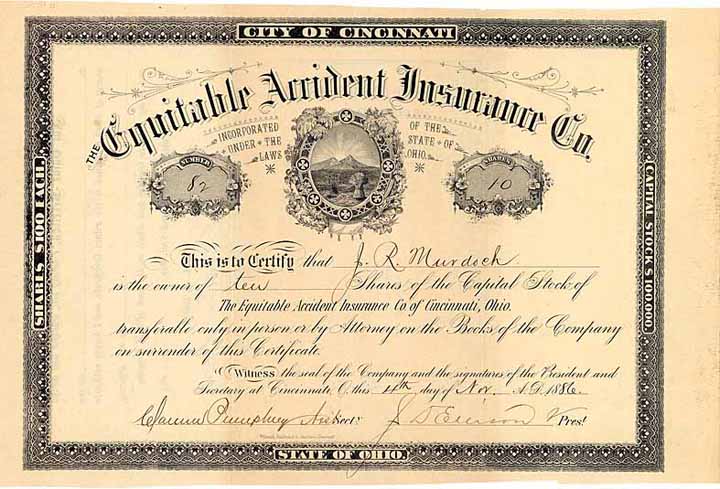 CITY OF CINCINNATI
THE Equitable Accident Insurance Co.
INCORPORATED UNDER THE LAWS
OF THE STATE OF OHIO.
NUMBER
82
SHARES
10
SHARES $100 EACH.
CAPITAL STOCK $100,000.
This is to Certify that J. R. Murdoch
is the owner of ten Shares of the Capital Stock of
The Equitable Accident Insurance Co. of Cincinnati, Ohio.
transferable only in person or by Attorney on the Books of the Company
on surrender of this Certificate.
Witness the seal of the Company and the signatures of the President and
Secretary at Cincinnati, O. this day of Nov. A.D. 1886.
Pumphrey Sect: Pres!
STATE OF OHIO.